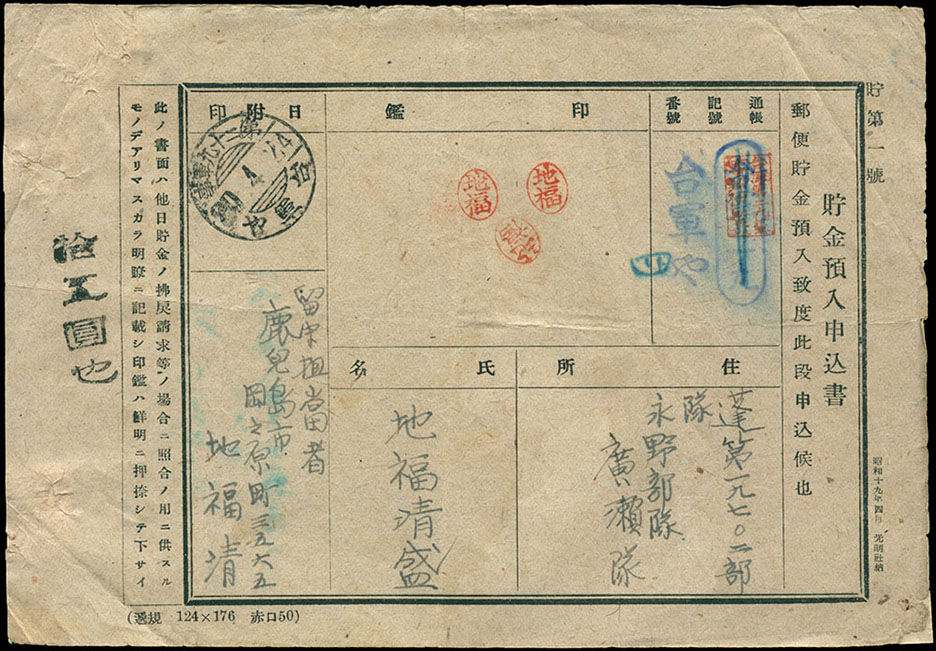 貯第一號
貯金預入申込書
郵便貯金預入致度此段申込候也
昭和十九年四月
通帳
記號
番號
台軍や
四
印鑑
地福
地福
日附印
台軍や
住所
蓬第一九七〇二部
隊
永野部隊
廣瀨隊
氏名
地福清盛
留守担當者
鹿兒島市
岡之原町三五六五
地福清
此ノ書面ハ他日貯金ノ拂戻請求等ノ場合ニ照合ノ用ニ供スル
モノデアリマスカラ明瞭ニ記載シ印鑑ハ鮮明ニ押捺シテ下サイ
拾五圓也
(遞規 124×176 赤口50)